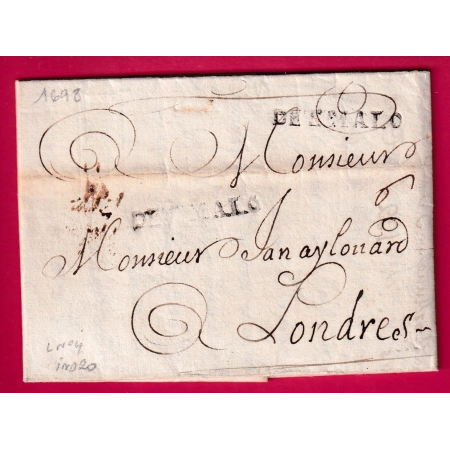 1698
DE S MALO
Monsieur
6
DE S MALO
Monsieur Jan aylouard
A Londres
L no 4
ind 20